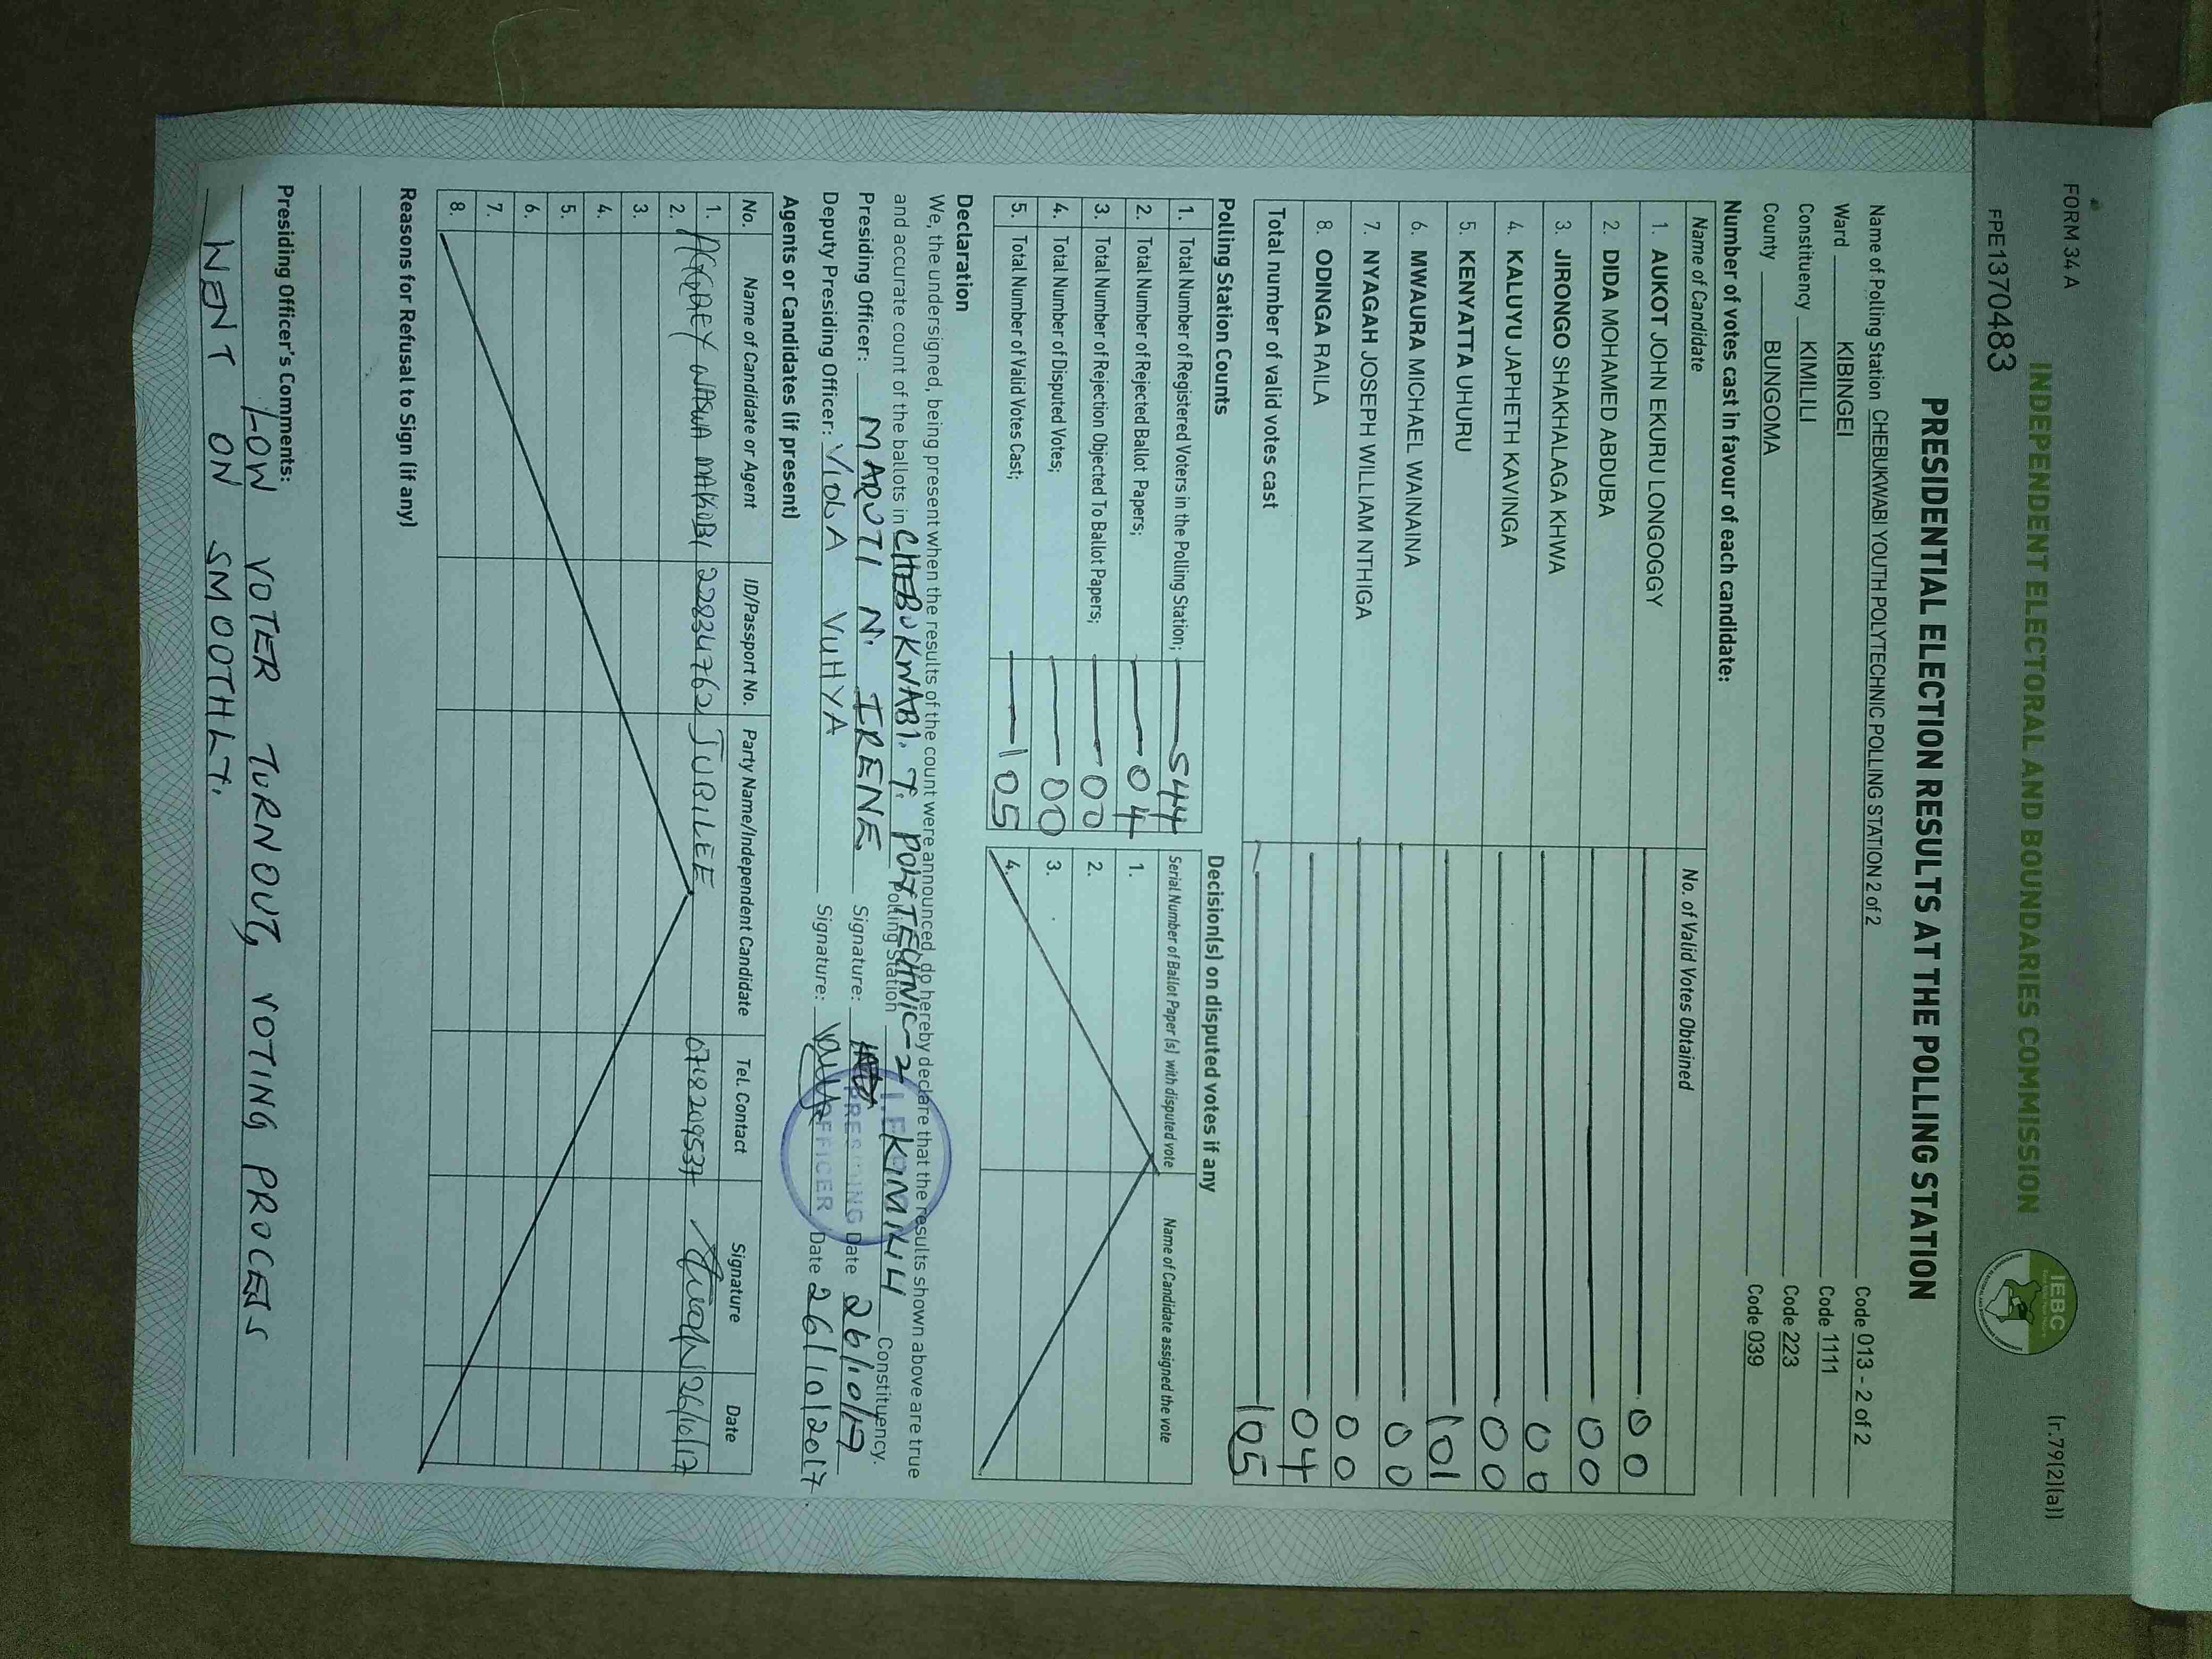 FORM 34 A
(r.79(2)(a))
INDEPENDENT ELECTORAL AND BOUNDARIES COMMISSION
IEBC
FPE1370483
PRESIDENTIAL ELECTION RESULTS AT THE POLLING STATION
Name of Polling Station CHEBUKWABI YOUTH POLYTECHNIC POLLING STATION 2 of 2 Code 013 - 2 of 2
Ward KIBINGEI Code 1111
Constituency KIMILILI Code 223
County BUNGOMA Code 039
Number of votes cast in favour of each candidate:
Name of Candidate No. of Valid Votes Obtained
1. AUKOT JOHN EKURU LONGOGGY 00
2. DIDA MOHAMED ABDUBA 00
3. JIRONGO SHAKHALAGA KHWA 00
4. KALUYU JAPHETH KAVINGA 00
5. KENYATTA UHURU 101
6. MWAURA MICHAEL WAINAINA 00
7. NYAGAH JOSEPH WILLIAM NTHIGA 00
8. ODINGA RAILA 04
Total number of valid votes cast 105
Polling Station Counts
1. Total Number of Registered Voters in the Polling Station; 544
2. Total Number of Rejected Ballot Papers; 04
3. Total Number of Rejection Objected To Ballot Papers; 00
4. Total Number of Disputed Votes; 00
5. Total Number of Valid Votes Cast; 105
Decision(s) on disputed votes if any
Serial Number of Ballot Paper (s) with disputed vote Name of Candidate assigned the vote
1.
2.
3.
4.
Declaration
We, the undersigned, being present when the results of the count were announced, do hereby declare that the results shown above are true
and accurate count of the ballots in CHEBUKWABI. T. POLYTECHNIC-2 Polling Station KIMILILI Constituency.
Presiding Officer: MARUTI N. IRENE Signature: Date 26/10/17
Deputy Presiding Officer: VIOLA VUHYA Signature: Date 26/10/2017.
PRESIDING
OFFICER
Agents or Candidates (if present)
No. Name of Candidate or Agent ID/Passport No. Party Name/Independent Candidate Tel. Contact Signature Date
1. AGGREY WASWA MAKOBI 22834762 JUBILEE 0718209537 26/10/17
2.
3.
4.
5.
6.
7.
8.
Reasons for Refusal to Sign (if any)
Presiding Officer's Comments:
LOW VOTER TURNOUT, VOTING PROCESS
WENT ON SMOOTHLY.